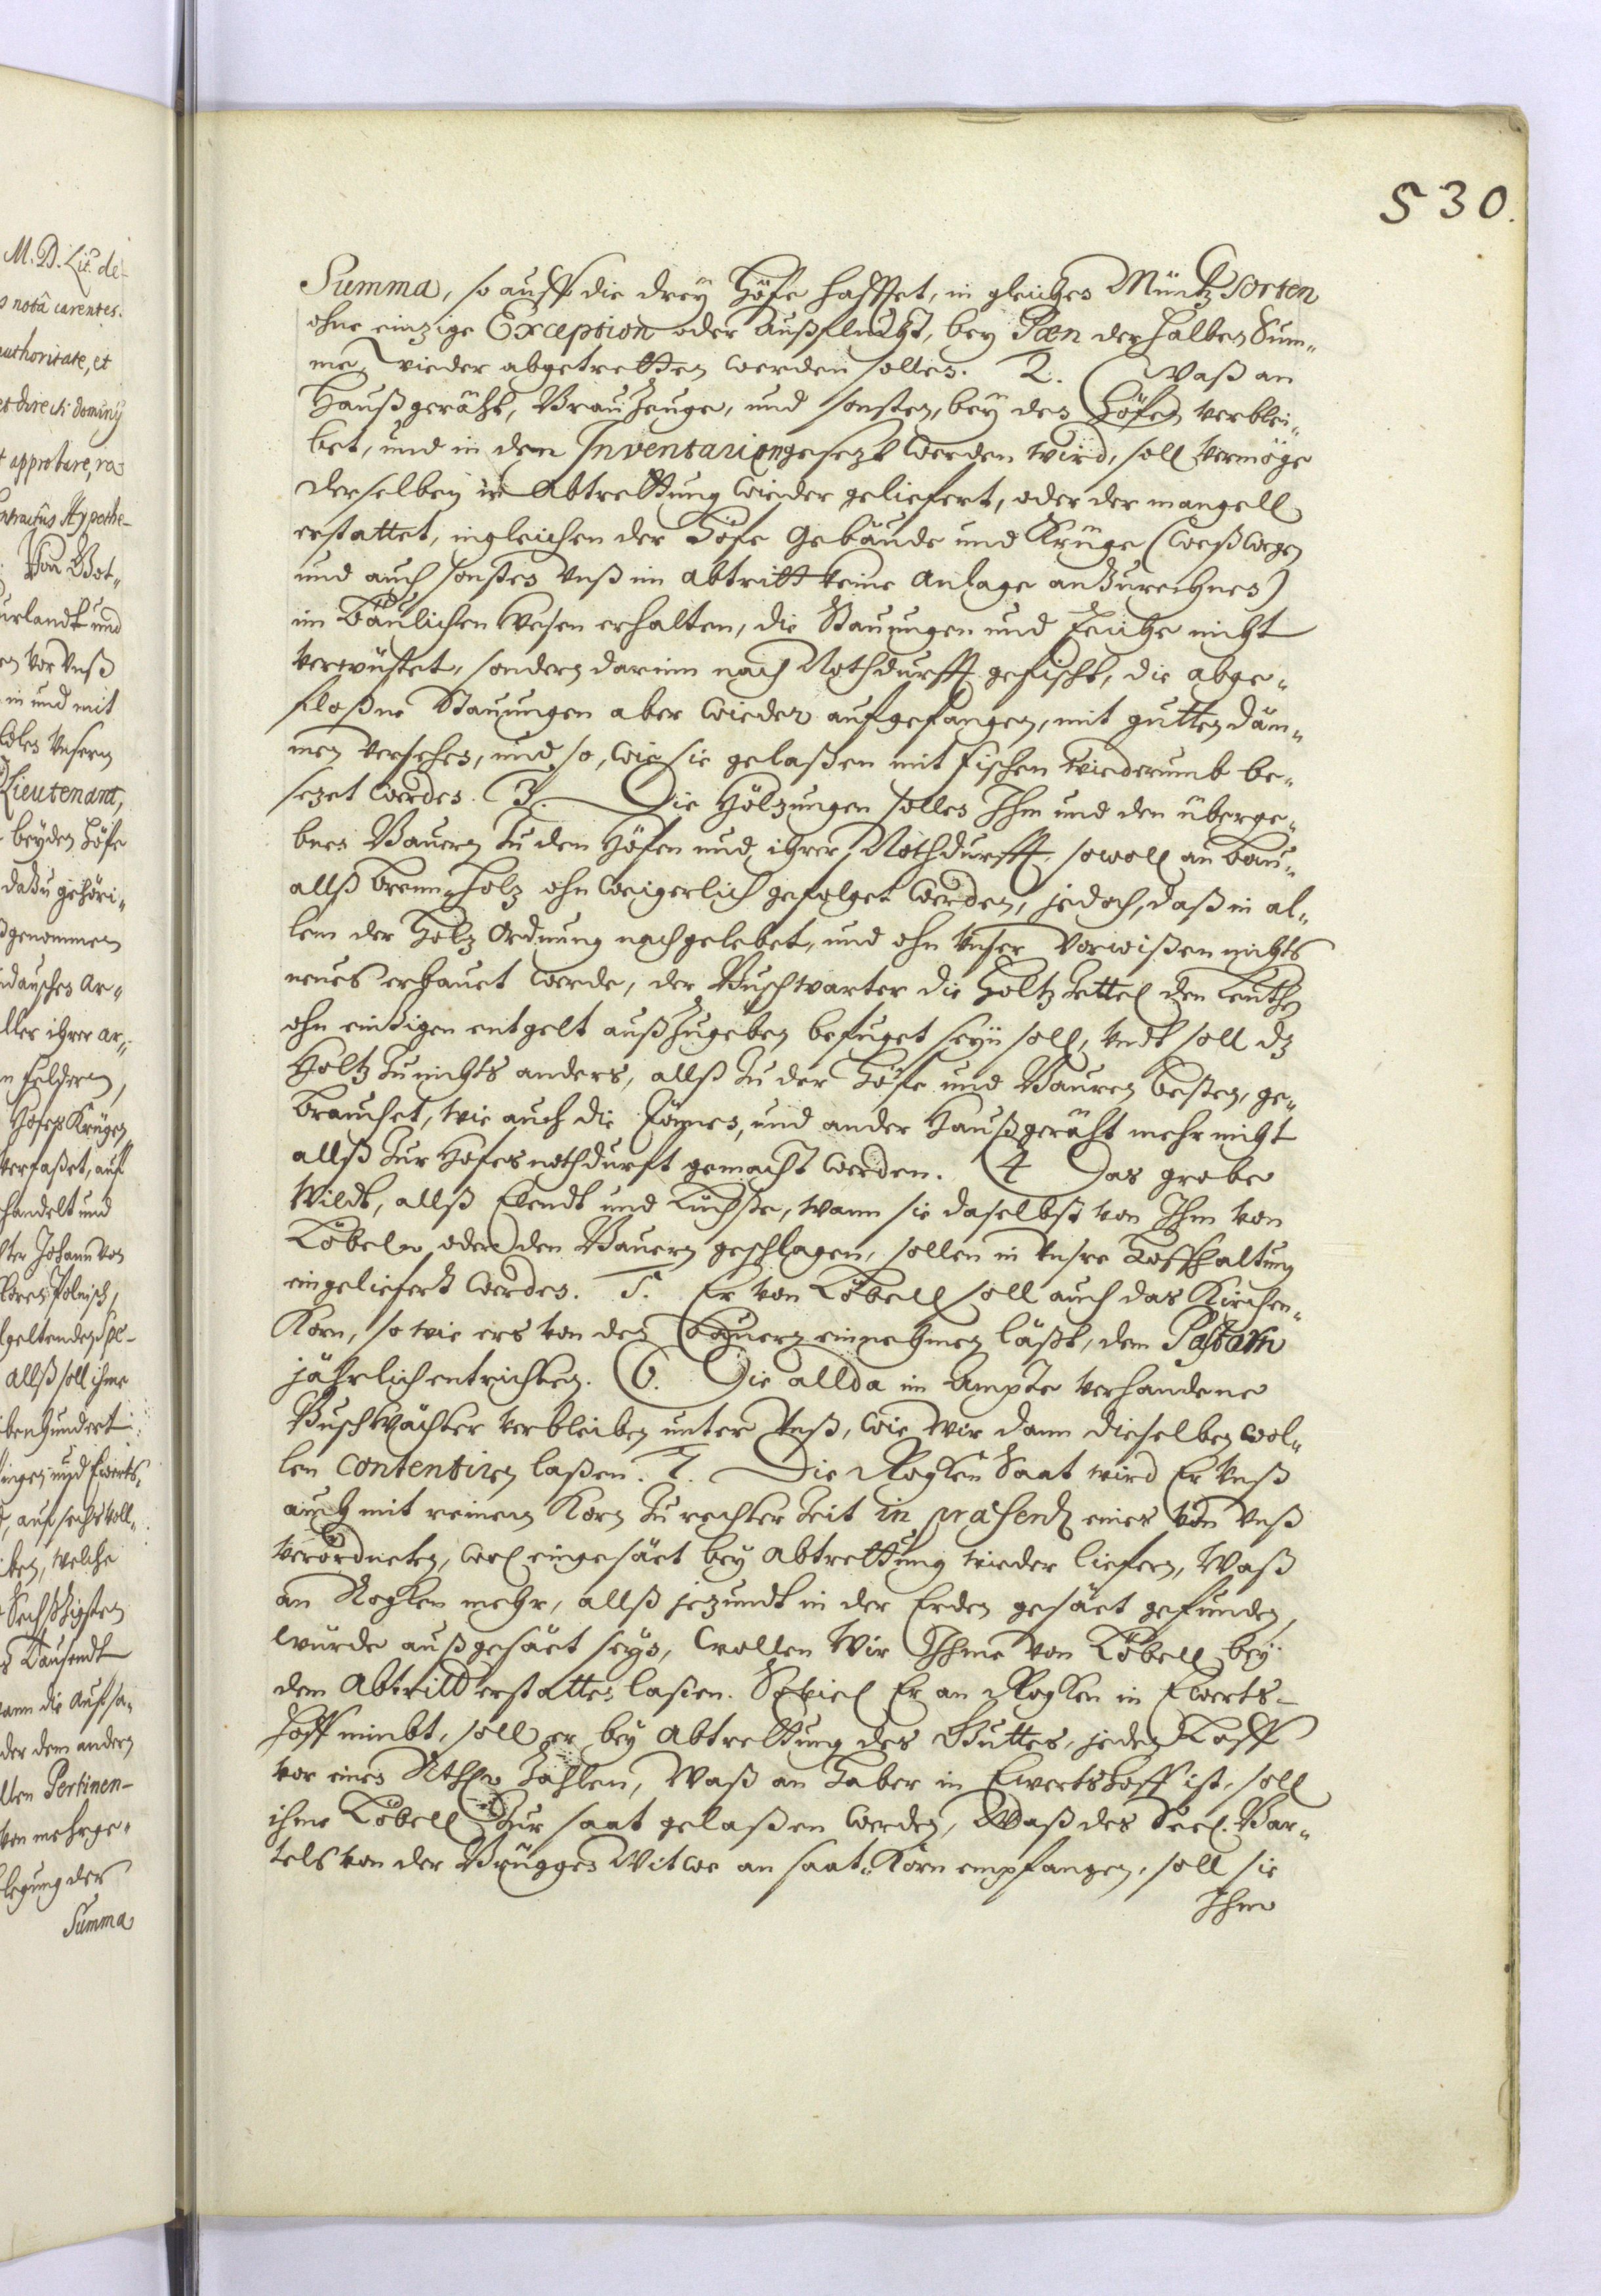 530.
Summa, so auff die dreÿ Höfe hafftet, in gleichen Müntz sorten
ohne einzige Exception oder Außflucht, beÿ Pœn der halben Sum„
me, wieder abgetretten werden sollen. 2. Waß an
Haußgeräht, Brauzeuge, und sonsten, beÿ den Höfen verblei„
bet, und in dem Inventarium gesezt werden wird, soll vermöge
derselben in Abtrettung wieder geliefert, oder der mangell
erstattet, ingleichen der Höfe Gebäude und Krüge (weßwegen
und auch sonsten Unß im Abtritt keine Anlage anzurechnen)
im Bäulichen Wesen erhalten, die Stauungen und Teiche nicht
verwüstet, sondern darinn nach Nothdurfft gefischt, die abge„
floßne Stauungen aber wieder aufgefangen, mit gutten Däm„
men versehen, und so, wie sie gelaßen mit Fischen wiederumb be„
sezet werden. 3. Die Hölzungen sollen Ihm und den überge„
bnen Bauern zu den Höfen und ihrer Nothdurfft, sowoll an Bau„
allß Brenn-Holz ohnweigerlich gefolget werden, jedoch, daß in al„
lem der Holz Ordnung nachgelebet, und ohn Unser Vorwißen nichts
neues erbauet werde, der Buschwarter die Holtz Zettel den Leuthen
ohn einzigen entgelt außzugeben befuget seÿn soll, Undt soll dz
Holtz zu nichts anders, allß zu der Höfe und Bauren besten, ge„
brauchet, wie auch die Tönnen, und ander Haußgeräht mehr nicht
allß zur Hofes nothdurft gemacht werden. 4 Das grobe
Wildt, allß Elendt und Lüchße, wann sie daselbst von Ihm von
Köbeln oder den Bauern geschlagen, sollen in Unsre Hoffhaltung
eingeliefert werden. 5. Er von Köbell soll auch das Kirchen„
Korn, so wie ers von den Bauern einnehmen läßt, dem Pastorn
jährlich entrichten. 6. Die allda im Ampte verhandene
Buschwächter verbleiben unter Unß, wie Wir dann dieselben wol„
len contentiren laßen. 7. Die Rogken Saat wird Er Unß
auch mit reinem Korn zu rechter Zeit in præsentz eines von Unß
verordneten, wol eingesäet beÿ Abtrettung wieder liefern, Waß
an Rogken mehr, allß jezundt in der Erden gesäet gefunden,
würde außgesäet seÿn, wollen Wir Ihme von Köbell beÿ
dem Abtritt erstatten laßen. Soviel Er an Rogken in Ewerts-
hoff nimbt, soll er beÿ Abtrettung des Guttes, jeden Looff
vor einen Rthlr zahlen, Waß an Haber in Ewertshoff ist, soll
ihme Köbell zur saat gelaßen werden, Waß des Seel. Bar„
tels von der Brüggen Witwe an saat-Korn empfangen, soll sie
Ihm
M. D. Lit. de-
notâ carentes.
authoritate, et
approbare, ra-
Hypothe-
urlandt und
vor Unß
in und mit
Unsern
Lieutenant,
beÿden Höfe
dazu gehöri„
genommen
aller ihrer ar„
Feldern,
Hofes Krügen
verfaßet, auf
handelt und
Johann von
Polnisch,
geltenden Spe-
allß soll ihme
benhundert
und Ewerts„
auf sechs voll„
welche
Sechßzigsten
Tausendt
wann die Aufsa„
der dem andern
Pertinen-
von mehrge„
legung der
Summa